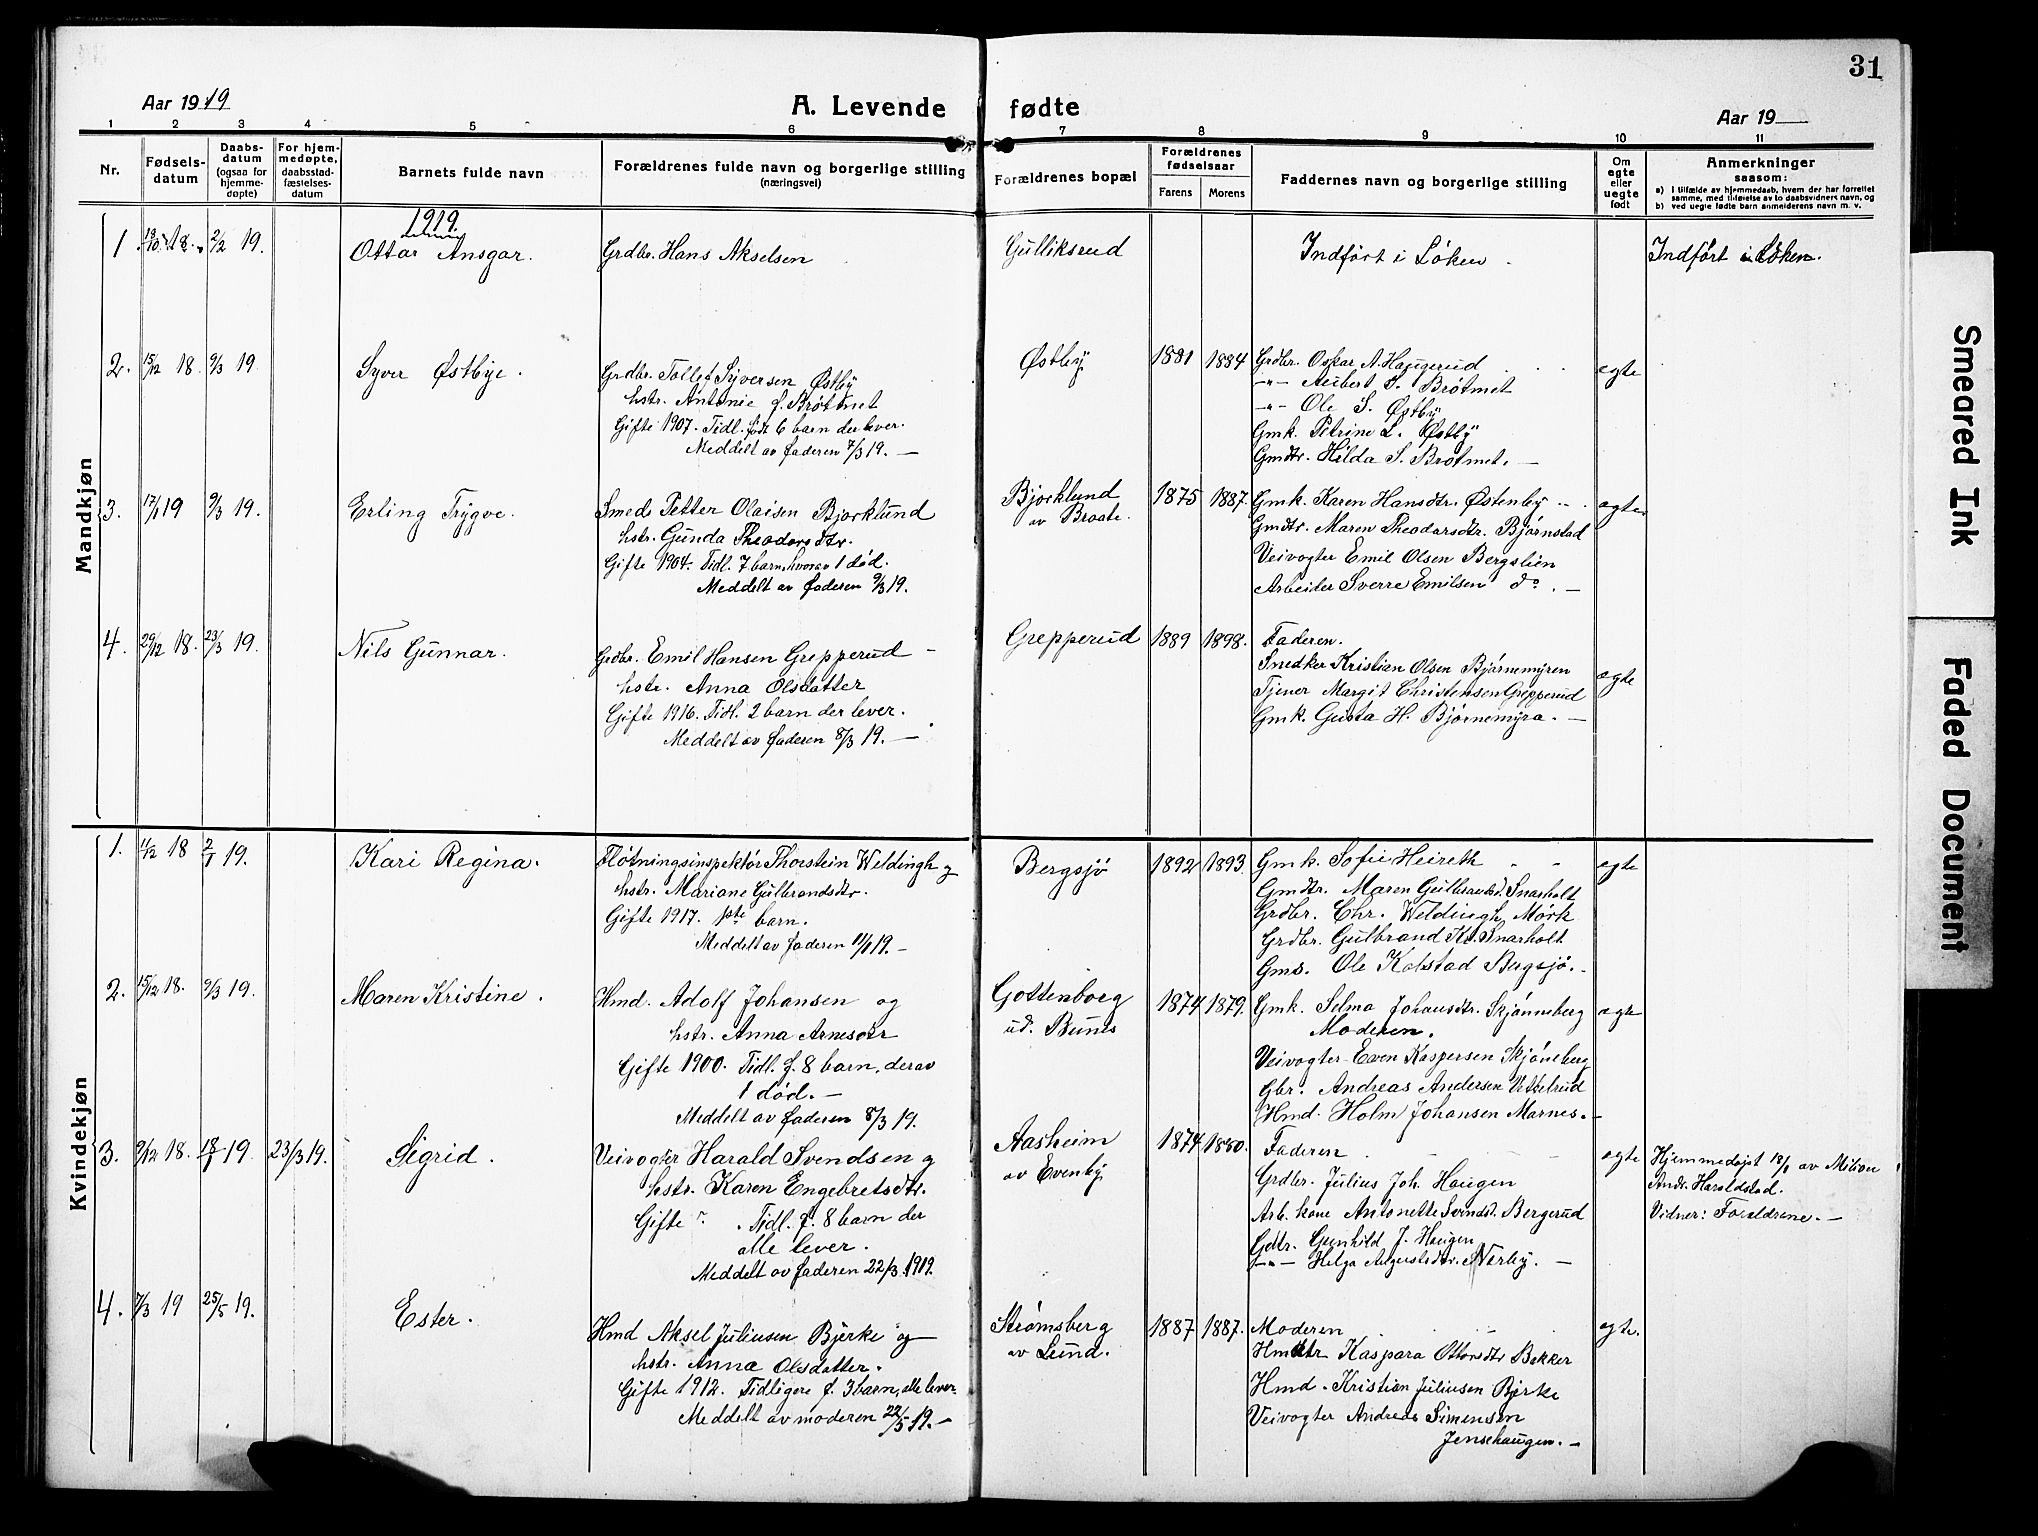 31
Aar 1919
A. Levende fødte
Aar 19
1 2 3 4 5 6 7 8 9 10 11
Nr.
Fødselsdatum
Daabsdatum (ogsaa for hjemmedøpte)
For hjemmedøpte, daabsstadfæstelsesdatum
Barnets fulde navn
Forældrenes fulde navn og borgerlige stilling
(næringsvei)
Forældrenes bopæl
Forældrenes fødselsaar
Farens
Morens
Faddernes navn og borgerlige stilling
Om egte eller uegte født
Anmerkninger
saasom:
a) I tilfælde av hjemmedaab, hvem der har forrettet
samme, med tilføielse av to daabsvidners navn, og
b) ved uegte fødte barn anmelderens navn m. v.
Mandkjøn
1919.
1 18/10 18. 2/2 19. Ottar Ansgar. Grdbr. Hans Akselsen Gulliksrud Indført i Løken. Indført i Løken.
2. 15/12 18. 9/3 19 Syver Østbye. Grdbr. Tollef Syversen Østby Østby 1881 1884 Grdbr. Oskar A. Haugerud egte
hstr. Antonie f. Brøtmet -"- Aubert S. Brøtmet
Gifte 1907. Tidl. født 6 barn der lever. -"- Ole S. Østby
Meddelt av faderen 7/3 19. — Gmk. Petrine L. Østby
Gmdtr. Hilda S. Brøtmet. —
3. 17/1 19 9/3 19. Erling Trygve. Smed Petter Olaisen Bjorklund Bjorklund av Braate. 1875 1887. Gmk. Karen Hansdtr. Østenby egte
hstr. Gunda Theodorsdtr. Gmdtr. Maren Theodorsdtr. Bjørnstad
Gifte 1904. Tidl. 7 barn, hvorav 1 død. Veivogter Emil Olsen Bergslien
Meddelt av faderen 9/3 19. Arbeider Sverre Emilsen do. —
4. 29/12 18. 23/3 19. Nils Gunnar. Grdbr. Emil Hansen Grepperud Grepperud 1889 1898. Faderen. egte
hstr. Anna Olsdatter Snedker Kristian Olsen Bjørnemyren
Gifte 1916. Tidl. 2 barn der lever. Tjener Margit Christensen Grepperud
Meddelt av faderen 8/3 19. — Gmk. Gusta H. Bjørnemyra. —
Kvindekjøn
1. 1/12 18 2/1 19. Kari Regina. Fløtningsinspektør Thorstein Weldingh og Bergsjø 1892 1893. Gmk. Sofie Heireth egte
hstr. Mariane Gulbrandsdtr. Gmdtr. Maren Gulbrandsd. Snarholt
Gifte 1917. 1ste barn. Grdbr. Chr. Weldingh, Mørk
Meddelt av faderen 11/1 19. — Grdbr. Gulbrand K. Snarholt
Gms. Ole Kolstad Bergsjø. -
2. 15/12 18. 9/3 19. Maren Kristine. Hmd. Adolf Johansen og Gottenborg ud. Bunes 1874 1879. Gmk. Selma Johansdtr. Skjønneberg egte
hstr. Anna Arnesdtr Moderen.
Gifte 1900. Tidl. f. 8 barn, derav Veivogter Even Kaspersen Skjøneberg
1 død. — Gbr. Andreas Andersen
Meddelt av faderen 8/3 19. Hmd. Holm Johansen Marnes. —
3. 9/12 18. 18/1 19. 23/3 19. Sigrid. Veivogter Harald Svendsen og Aasheim av Evenby, 1874 1880. Faderen egte Hjemmedøpt 18/1 av
hstr. Karen Engebretsdtr. Grdbr. Julius Joh. Haugen Andr. Haraldstad.
Gifte ?. Tidl. f. 8 barn der Arb. kone Antonette Svendsd. Bergerud Vidner: Forældrene. —
alle lever. Gdtr. Gunhild J. Haugen
Meddelt av faderen 22/3 1919. -"- Helga Augustsdtr. Nærby. —
4. 7/3 19 25/5 19. Ester. Hmd Aksel Juliusen Bjerke og Strømsberg av Lund. 1887 1887. Moderen egte.
hstr. Anna Olsdatter. Hmdtr Kaspara Ottarsdtr Bekker
Gifte 1912. Tidligere f. 3 barn, alle lever. Hmd. Kristian Juliusen Bjerke
Meddelt av moderen 22/5 19. — Veivogter Andreas Simensen
Jensehaugen. —
Smeared Ink
Faded Document